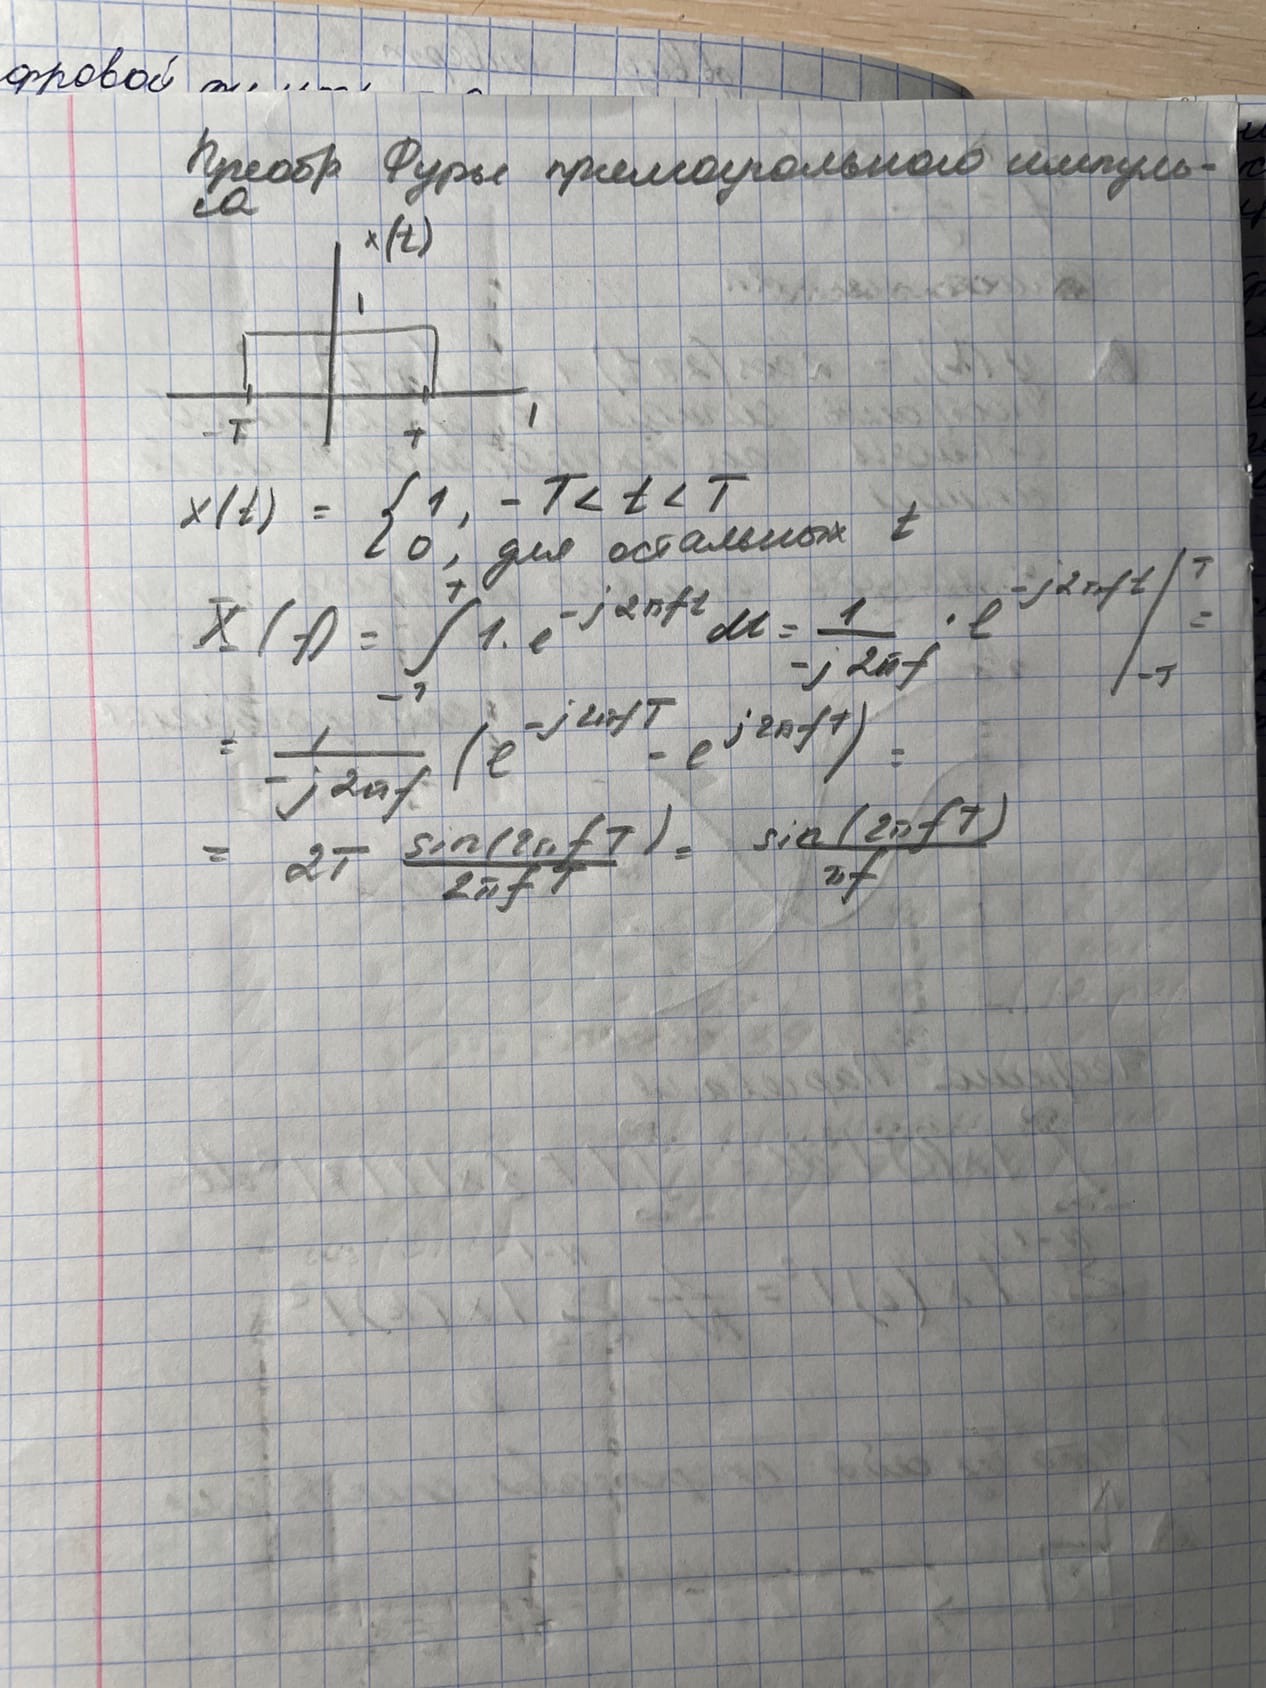 фровой
Преобр Фурье прямоугольного импуль-
са
x(t)
1
-T T 1
x(t) = { 1, -T < t < T
0, для остальных t
X(f) = ∫_{-T}^{T} 1·e^{-j2πft} dt = 1/(-j2πf) · e^{-j2πft} |_{-T}^{T} =
= 1/(-j2πf) (e^{-j2πfT} - e^{j2πfT}) =
= 2T sin(2πfT)/(2πfT) = sin(2πfT)/(πf)